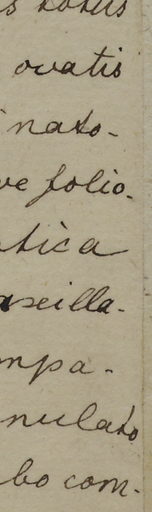 s totus
ovatis
nato-
ve folio-
tica
axilla-
mpa-
nulato
bo com-